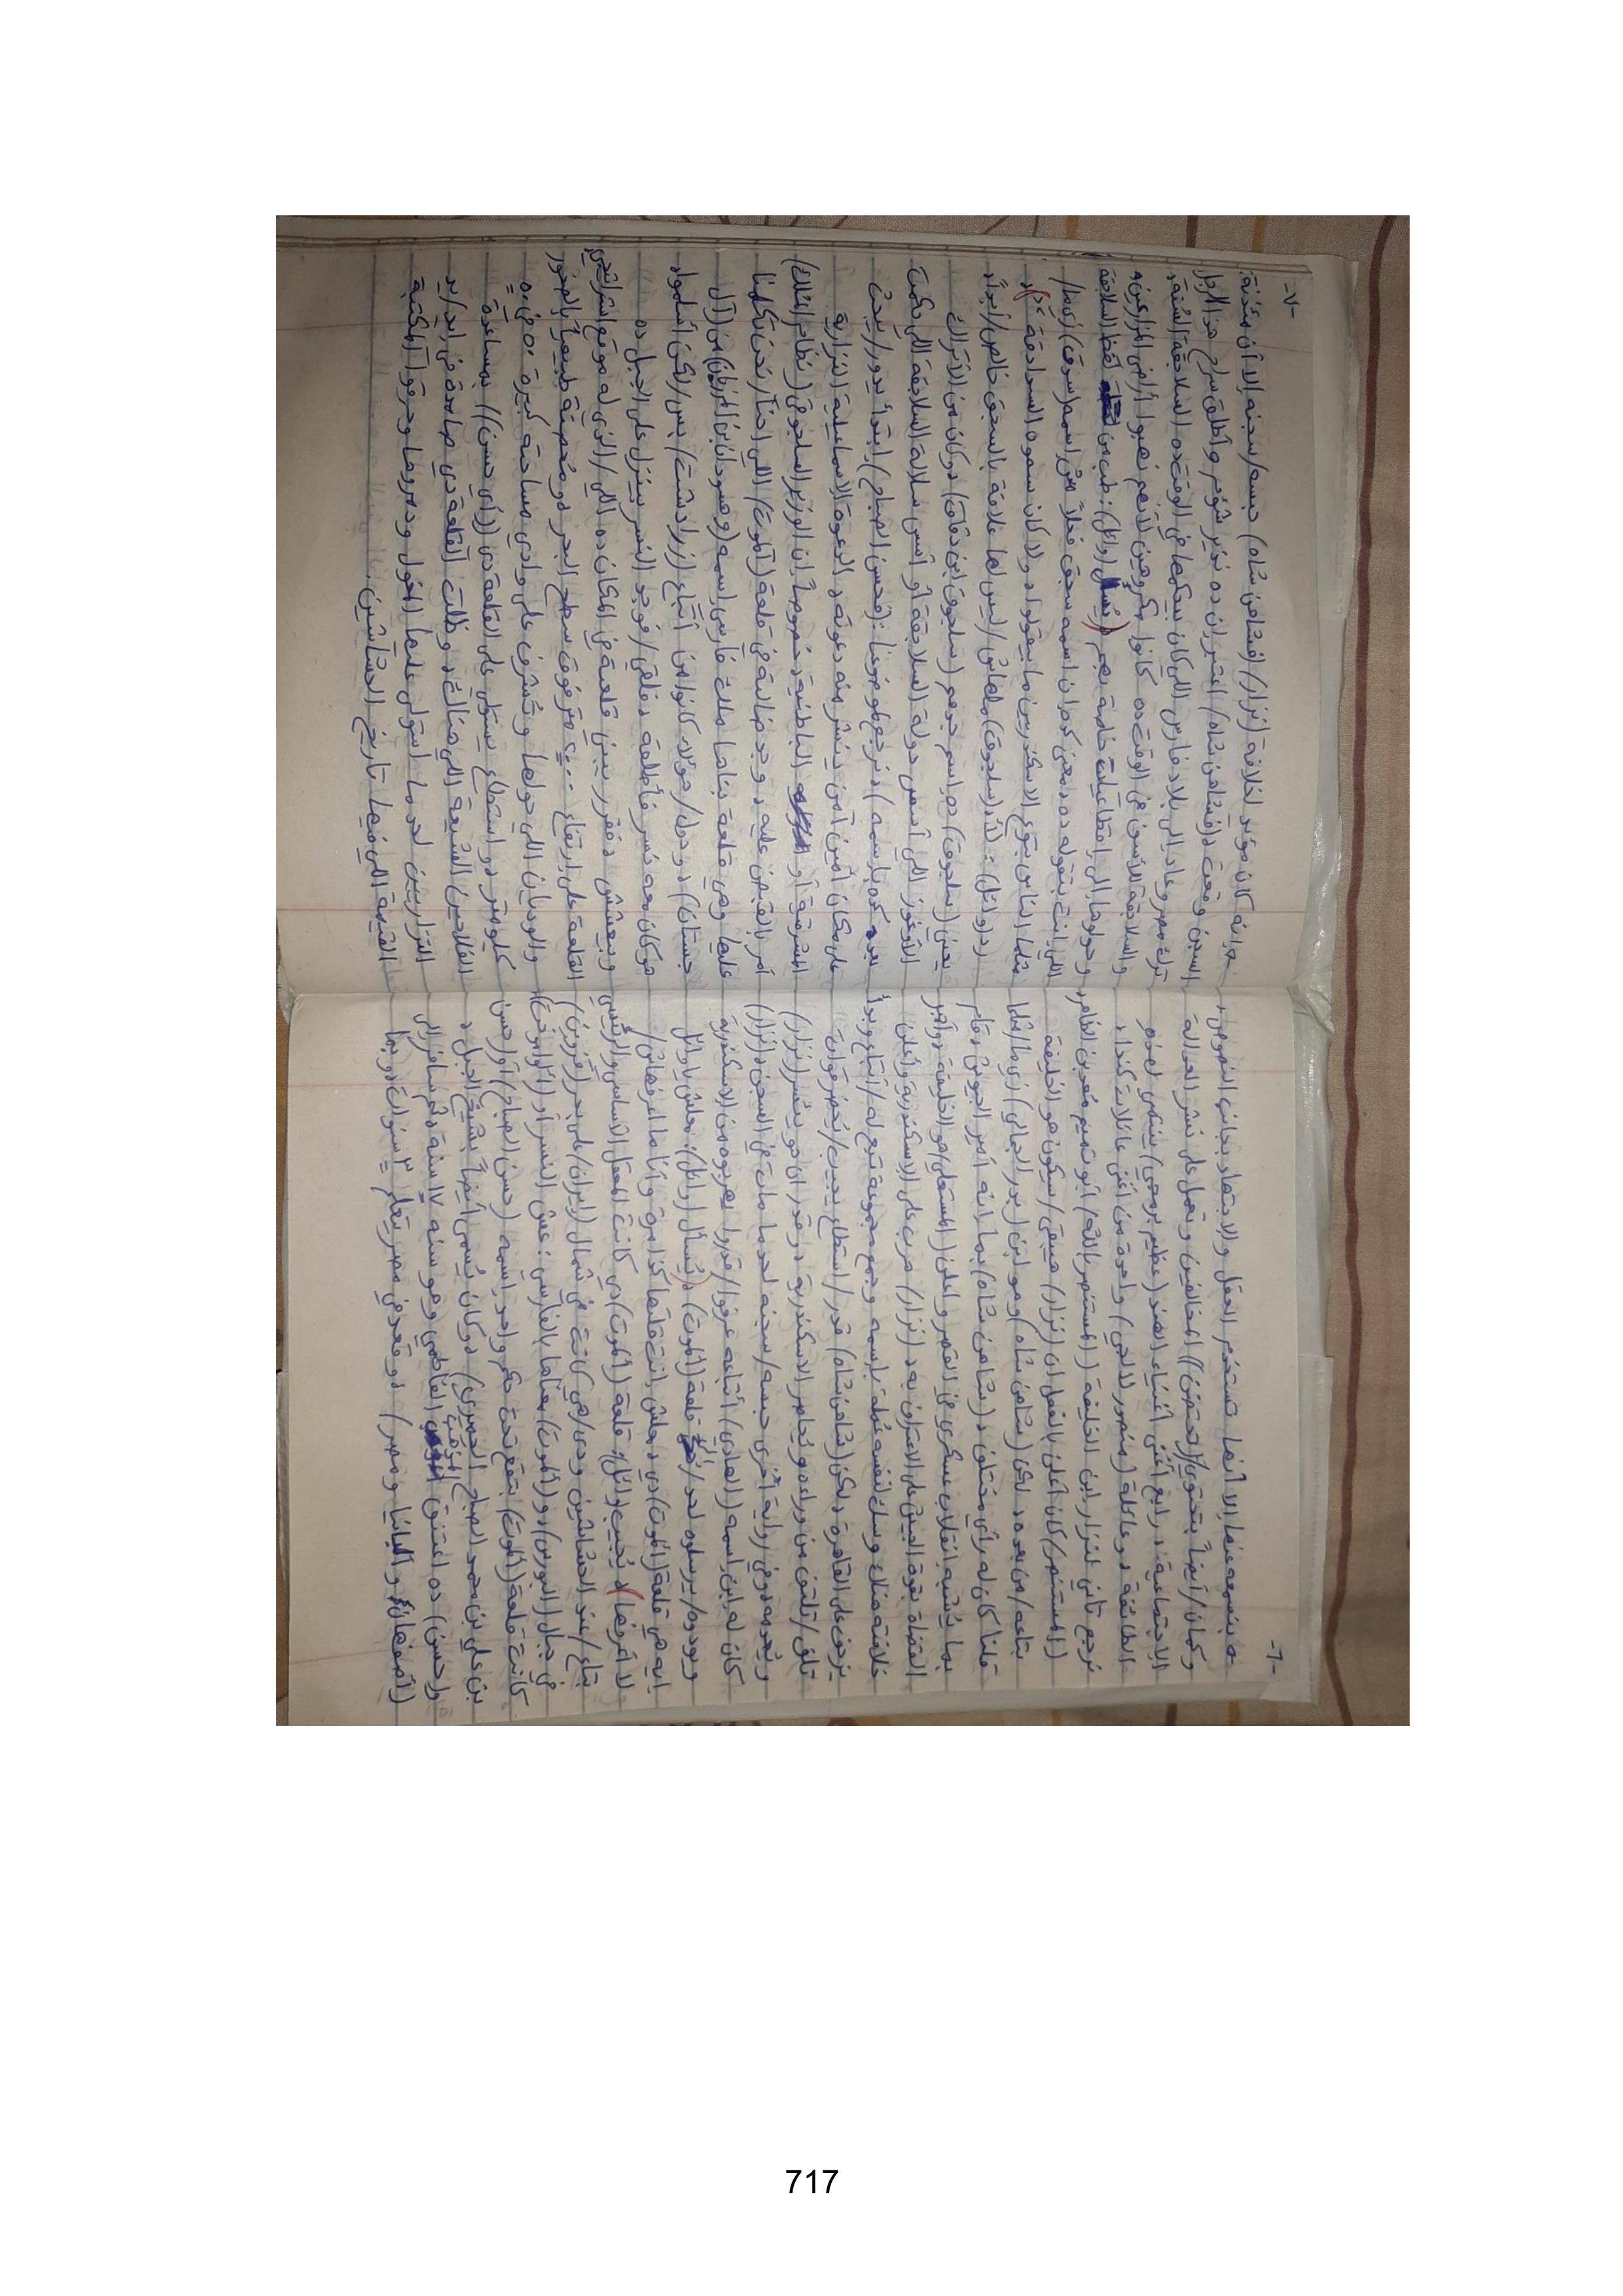 -٦-
بنسمعه عنها إلا أنها تستخدم العقل والاجتهاد بجانب النصوص،
وكمان/أيضاً بتحتوي/(تحتضن)) المخالفين وتعمل على نشر العدالة
الاجتماعية، رابع أغنى أغنياء الهند (عظيم برمجي) ينتمي لهذه
الطائفة، دو عائلة (منصور لالجي) واحدة من أغنى عائلات كندا،
نرجع تاني لنزار ابن الخليفة ((المستنصر بالله/أبو تميم مُعد بن الظاهر،
((المستنصر/كان أعلن بالفعل إن (نزار) هيبقى/سيكون هو الخليفة
بتاعه/من بعده، لكن (شاهن شاه) وهو ابن (بدر الجمالي) زي ما/مثلما
قلنا كان له رأي مختلف، د (شاهن شاه) بما انه أمير الجيوش، قام
بما يُشبه انقلاب عسكري في القصر وأعلن (المستعلي) هو الخليفة، وأجبر
القضاة بقوة الجيش على الاعتراف به، (نزار) هرب على الإسكندرية وأعلن
خلافته هناك وسك لنفسه عُملة بإسمه وجمع مجموعة تبع له/أتباع وبدأ
يزحف على القاهرة، لكن (شاهن شاه) قدر/استطاع يجيب/يُحضر قوات
تلف/تلتف من وراءه ويُحاصر الاسكندرية، وقدر ان هو يئسر (نزار)
ويُعدمه، وفي رواية أخرى حبسه/سجنه لحد ما مات في السجن، (نزار)
كان له ابن اسمه (الهادي) أتباعه عرفوا/قدروا يهربوه من الاسكندرية
ويودوه/يرسلوه لحد/إلى قلعة (ألموت)، (يُسأل (وائل): معلش يا وائل
ايه هي قلعة (ألموت) دي، معلش انت قلتها كذا مرة وأنا ما اعرفهاش/
لا أعرفها)، (يُجيب (وائل)): قلعة (ألموت) دي كانت المعقل الأساسي والرئيسي
بتاع/عند الحشاشين ودي/هي كانت في شمال (إيران) على بحر (قزوين)
في جبال (البورس)، و(ألموت) معناها بالفارسي: عش النسر أو (
كانت قلعة (ألموت) بتقع تحت حكم واحد اسمه (حسن الصباح) أو (حسن
بن علي بن محمد الصباح الحميري)، وكان يُسمى أيضاً بشيخ الجبل،
و(حسن) ده اعتنق المذهب الفاطمي وهو سنه ١٧ سنة، ثم سافر إلى
(أصفهان) و ألبانيا ومصر)، وقعد في مصر يتعلم ٣ سنوات، وبما
-٧-
انه كان مؤيد لخلافة (نزار)/(فشاهن شاه) حبسه/سجنه إلا أن مئذنة
السجن وقعت، (فشاهن شاه) اعتبر ان ده نذير شؤم وأطلق سراح هذا الرجل
ترك مصر وعاد إلى بلاد فارس اللي كان بيحكمها في الوقت ده السلاجقة السُنة،
والسلاجقة الأسف في الوقت ده كانوا مكروهين لأنهم نهبوا أراضي المزارعين
وحولوها إلى إقطاعيات خاصة بهم، (يُسأل (وائل): طب من لفظ السلاجقة
اللي انت بتقوله ده، معنى كده ان اسمه سجق فعلاً مش اسمه (سدق) زي ما/
مثلما الناس بتوع الإسكندرية ما بيقولوا، ولا كان سموه السدادقة؟)،
رد (وائل): لأ (سلجوق) ملهاش/ليس لها علاقة بالسجق خالص/أبداً،
يعني (سلجوق) ده اسم جدهم (سلجوق ابن دقاق)، وكان من الأتراك
الأوغوز اللي أسس دولة السلاجقة أو أسس سلالة السلاجقة اللي حكمت
بعد كده بإسمه)، نرجع لموضوعنا: (فحسن الصباح) ابتدأ يدور/يبحث
على مكان أمين آمن ينشر منه دعوته، الدعوة الإسماعيلية النزارية
المشرقة أو الباطنية، خصوصاً إن الوزير السلجوقي (نظام المُلك)
أمر بالقبض عليه، وجد ضالته في قلعة (ألموت) اللي احنا/نحن تكلمنا
عليها وهي قلعة بناها ملك فارسي اسمه (وهسودان بن المرزبان) من (آل
جستان)، ودول/هؤلاء كانوا من أتباع (زرادشت) بس/لكن أسلموا،
هو كان معه نسر فأطلعه، فلقى/فوجد النسر بينزل على الجبل ده
وبيعشش، فقرر يبني قلعة في المكان ده اللي/الذي له موقع استراتيجي
القلعة على ارتفاع ٢٠٠٠ متر فوق سطح البحر، ومُحصنة طبيعياً بالصخور
والوديان اللي حولها وتُشرف على وادي مساحته كبيرة ٥٠ في ٥
كيلومتر، واستطاع يستولي على القلعة دي ((أي حسن)) بمساعدة
الفلاحين الشيعة اللي هناك، وظلت القلعة دي صامدة في ايد/يد
النزاريين لحد ما استولى عليها المغول ودمروها وحرقوا المكتبة
القيمة اللي فيها تاريخ الحشاشين.
717